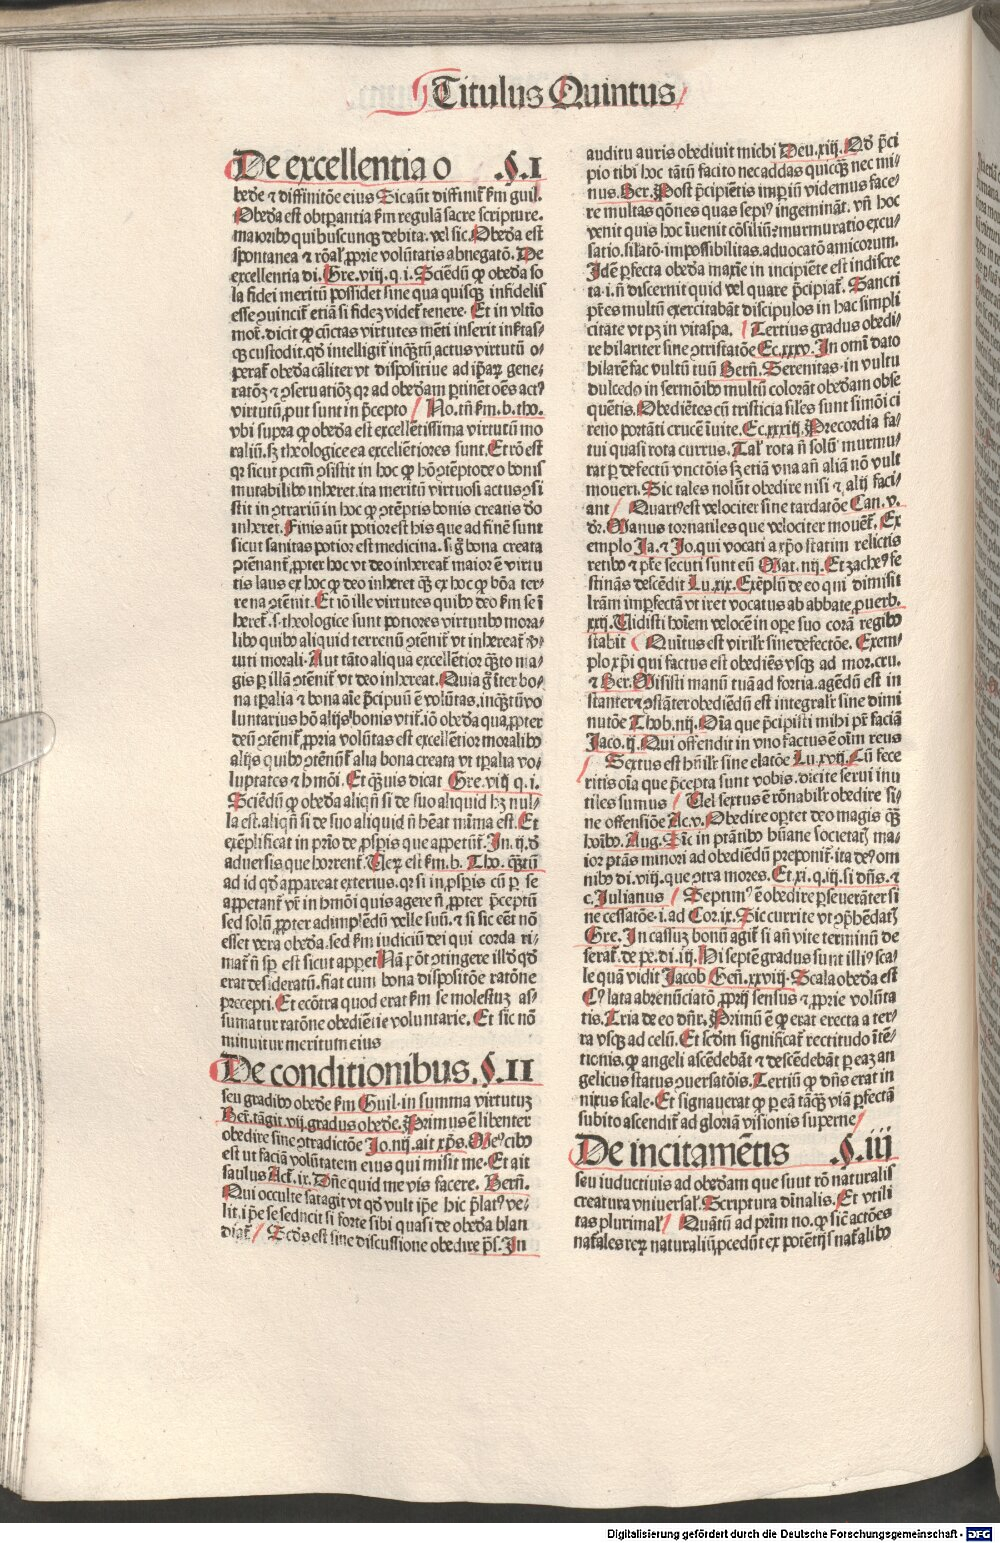 Titulus Quintus
De excellentia o .§.I
bedē ⁊ diffinitōe eius Sic aūt diffinit᷑ ẜm guil.
Obedīa est obtꝑantia ẜm regulā sacre scripture.
maioribꝰ quibuscunqꝫ debita. vel sic. Obedīa est
spontanea ⁊ rōal' ꝓprie volūtatis abnegatō. De
excellentia di. Gre. viij. q. i. Sciēdū ꝙ obedīa so
la fidei meritū possidet sine qua quisqꝫ infidelis
esse ꝯuincit᷑ etiā si fidez videt᷑ tenere. Et in vltīo
mor. dicit ꝙ cūctas virtutes mēti inserit insertas⸗
qꝫ custodit. qd' intelligit᷑ inqꝫtū actus virtutū o⸗
perat᷑ obedīa cāliter vt dispositiue ad ip̄aꝝ gene⸗
ratōꝫ ⁊ ꝯseruatiōꝫ qꝛ ad obedīam ꝑtinēt oēs actꝰ
virtutū, put sunt in p̄cepto / No. tn̄ ẜm. b. tho.
vbi supra ꝙ obedīa est excellētissima virtutum mo
raliū. sꝫ theologice ea excellētiores sunt. Et rō est
qꝛ sicut pctm̄ ꝯsistit in hoc ꝙ hō ꝯtēpto deo bonis
mutabilibꝰ inheret. ita meritū virtuosi actus ꝯsi
stit in ꝯtrariū in hoc ꝙ ꝯtēptis bonis creatis deo
inheret. Finis aūt potior est his que ad finē sunt
sicut sanitas potior est medicina. si g̊ bona creata
ꝯtēnant᷑ ꝓpter hoc vt deo inhereat᷑ maior ē virtu
tis laus ex hoc ꝙ deo inheret qꝫ̄ ex hoc ꝙ bōa ter⸗
rena ꝯtēnit. Et iō ille virtutes quibꝰ deo ẜm se ī
heret᷑. s. theologice sunt potiores virtutibꝰ mora⸗
libꝰ quibꝰ aliquid terrenū ꝯtēnit᷑ vt inhereat᷑ vir⸗
tuti morali. Aut tāto aliqua excellētior qꝫ̄to ma⸗
gis per illā ꝯtēnit᷑ vt deo inhereat. Quia g̊ īter bo⸗
na tꝑalia ⁊ bona aīe p̄cipuū ē volūtas. inqꝫ̄tū vo
luntarius hō alijs bonis vtit᷑. iō obedīa qua ꝓpter
deū ꝯtēnit᷑ ꝓpria volūtas est excellētior moralibꝰ
alijs quibꝰ ꝯtēnūt᷑ alia bona creata vt tꝑalia vo⸗
luptates ⁊ hmōi. Et qꝫ̄uis dicat Gre. viij q. i.
Sciēdū ꝙ obedīa aliqn̄ si de suo aliquid hꝫ nul⸗
la est. aliqn̄ si de suo aliquid n̄ hēat mīma est. Et
exēplificat in prīo de ꝓsꝑis que appetūt᷑. In. ij. de
aduersis que horrent᷑. Veꝝ est ẜm. b. Tho. qꝫ̄tū
ad id qd' appareat exterius. qꝛ si in ꝓsꝑis cū per se
appetant᷑ vt᷑ in hmōi quis agere n̄ ꝓpter p̄ceptū
sed solū ꝓpter adimplēdū velle suū. ⁊ si sic eēt nō
esset vera obedīa. sed ẜm iudiciū dei qui corda ri⸗
mat᷑ n̄ sꝑ est sicut apparet Nā pōt ꝯtingere illd' qd'
erat desideratū. fiat cum bona dispositōe ratōne
precepti. Et ecōtra quod erat ẜm se molestuꝫ as⸗
sumatur ratōne obediētie voluntarie. Et sic nō
minuitur meritum eius
De conditionibus. §.II
seu gradibꝰ obedīe ẜm Guil. in summa virtutuꝫ
Ber. tāgit. vij. gradus obedīe. Primus ē libenter
obedire sine ꝯtradictōe Jo. iiij. ait xp̄s. Meꝰ cibꝰ
est ut faciā volūtatem eius qui misit me. Et ait
saulus Act. ix. Dn̄e quid me vis facere. Bern̄.
Qui occulte satagit vt qd' vult ip̄e hic p̄latꝰ ve⸗
lit. ip̄e se seducit si forte sibi quasi de obedīa blan
diat᷑ / Scds est sine discussione obedire p̄s. In
auditu auris obediuit michi Deu. xiij. Qd' p̄ci
pio tibi hoc tātū facito nec addas quicqꝫ nec mi⸗
nus. Ber. Post p̄cipiētis imꝑiū videmus face⸗
re multas qōnes quas sepiꝰ ingeminat. vn̄ hoc
venit quis hoc īuenit cōsiliū: murmuratio excu⸗
satio. silatō. impossibilitas. aduocatō amicorum.
Idē ꝑfecta obedīa maxīe in incipiēte est indiscre
ta. i. n̄ discernit quid vel quare p̄cipiat᷑. Sancti
pr̄es multū exercitabāt discipulos in hac simpli
citate vt pꝫ in vitaspa. / Tertius gradus obedi⸗
re hilariter sine ꝯtristatōe Ec. xxxv. In omī dato
hilarē fac vultū tuū Bern̄. Serenitas in vultu
dulcedo in sermōibꝰ multū colorāt obedīam obse
quētis. Obediētes cū tristicia siles sunt simōi ci
reno portāti crucē īuite. Ec. xxxiij. Precordia fa⸗
tui quasi rota currus. Tal' rota n̄ solū murmu⸗
rat ꝑ defectū vnctōis sꝫ etiā vna an̄ aliā nō vult
moueri. Sic tales nolūt obedire nisi ⁊ alij faci⸗
ant / Quartꝰ est velociter sine tardatōe Can. v.
dr̄. Manus tornatiles que velociter mouēt᷑. Ex
emplo Ja. ⁊ Jo. qui vocati a xp̄o statim relictis
retibꝰ ⁊ pr̄e secuti sunt eū Mat. iiij. Et zacheꝰ fe
stinās descēdit Lu. xix. Exēplū de eo qui dimisit
lr̄am imꝑfectā vt iret vocatus ab abbate. ꝓuerb.
xxij. Vidisti hoīem velocē in oꝑe suo corā regibꝰ
stabit ( Quītus est virilr̄ sine defectōe. Exem⸗
plo xp̄i qui factus est obediēs vsqꝫ ad mor. cru.
⁊ Ber. Misisti manū tuā ad fortia. agēdū est in
stanter ⁊ ꝯstāter obediēdū est integralr̄ sine dimi
nutōe Thob. iiij. Oīa que p̄cipisti mihi pr̄ faciā
Jaco. ij. Qui offendit in vno factus ē oīm reus
/ Sextus est hūilr̄ sine elatōe Lu. xvij. Cū fece
ritis oīa que p̄cepta sunt vobis. dicite serui inu
tiles sumus / Vel sextus ē rōnabilr̄ obedire si⸗
ne offensiōe Ac. v. Obedire oꝑtet deo magis qꝫ̄
hoībꝰ. Aug. Sic in ptātibꝰ hūane societatꝭ ma⸗
ior ptās minori ad obediēdū preponit᷑. ita deꝰ om
nibꝰ di. viij. que ꝯtra mores. Et xi. q. iij. si dn̄s. ⁊
c. Julianus / Septimꝰ ē obedire ꝑseuerāter si
ne cessatōe. i. ad Cor. ix. Sic currite vt ꝯp̄hēdatꝭ
Gre. In cassuꝫ bonū agit᷑ si an̄ vite terminū de
serat᷑. de pe. di. iij. Hi septē gradus sunt illiꝰ sca⸗
le quā vidit Jacob Gen̄. xxviij. Scala obedīa est
Cꝰ lata abrenūciatō ꝓprij sensus ⁊ ꝓprie volūta
tis. Tria de eo dn̄r. Primū ē ꝙ erat erecta a ter⸗
ra vsqꝫ ad celū. Et scdm significat᷑ rectitudo ītē⸗
tionis. ꝙ angeli ascēdebāt ⁊ descēdebāt ꝑ eaꝫ an
gelicus status ꝯuersatōis. Tertiū ꝙ dn̄s erat in
nixus scale. Et signauerat ꝙ ꝑ eā tāqꝫ̄ viā ꝑfectā
subito ascendit᷑ ad gloriā visionis superne /
De incitamētis .§.iij
seu inductiuis ad obedīam que sunt rō naturalis
creatura vniuersal'. Scriptura diuīalis. Et vtili
tas plurimal' / Quātū ad prim̄ no. ꝙ sic̄ actōes
nat᷑ales reꝝ naturaliū ꝓcedūt ex potētijs nat᷑alibꝰ
Digitalisierung gefördert durch die Deutsche Forschungsgemeinschaft - DFG